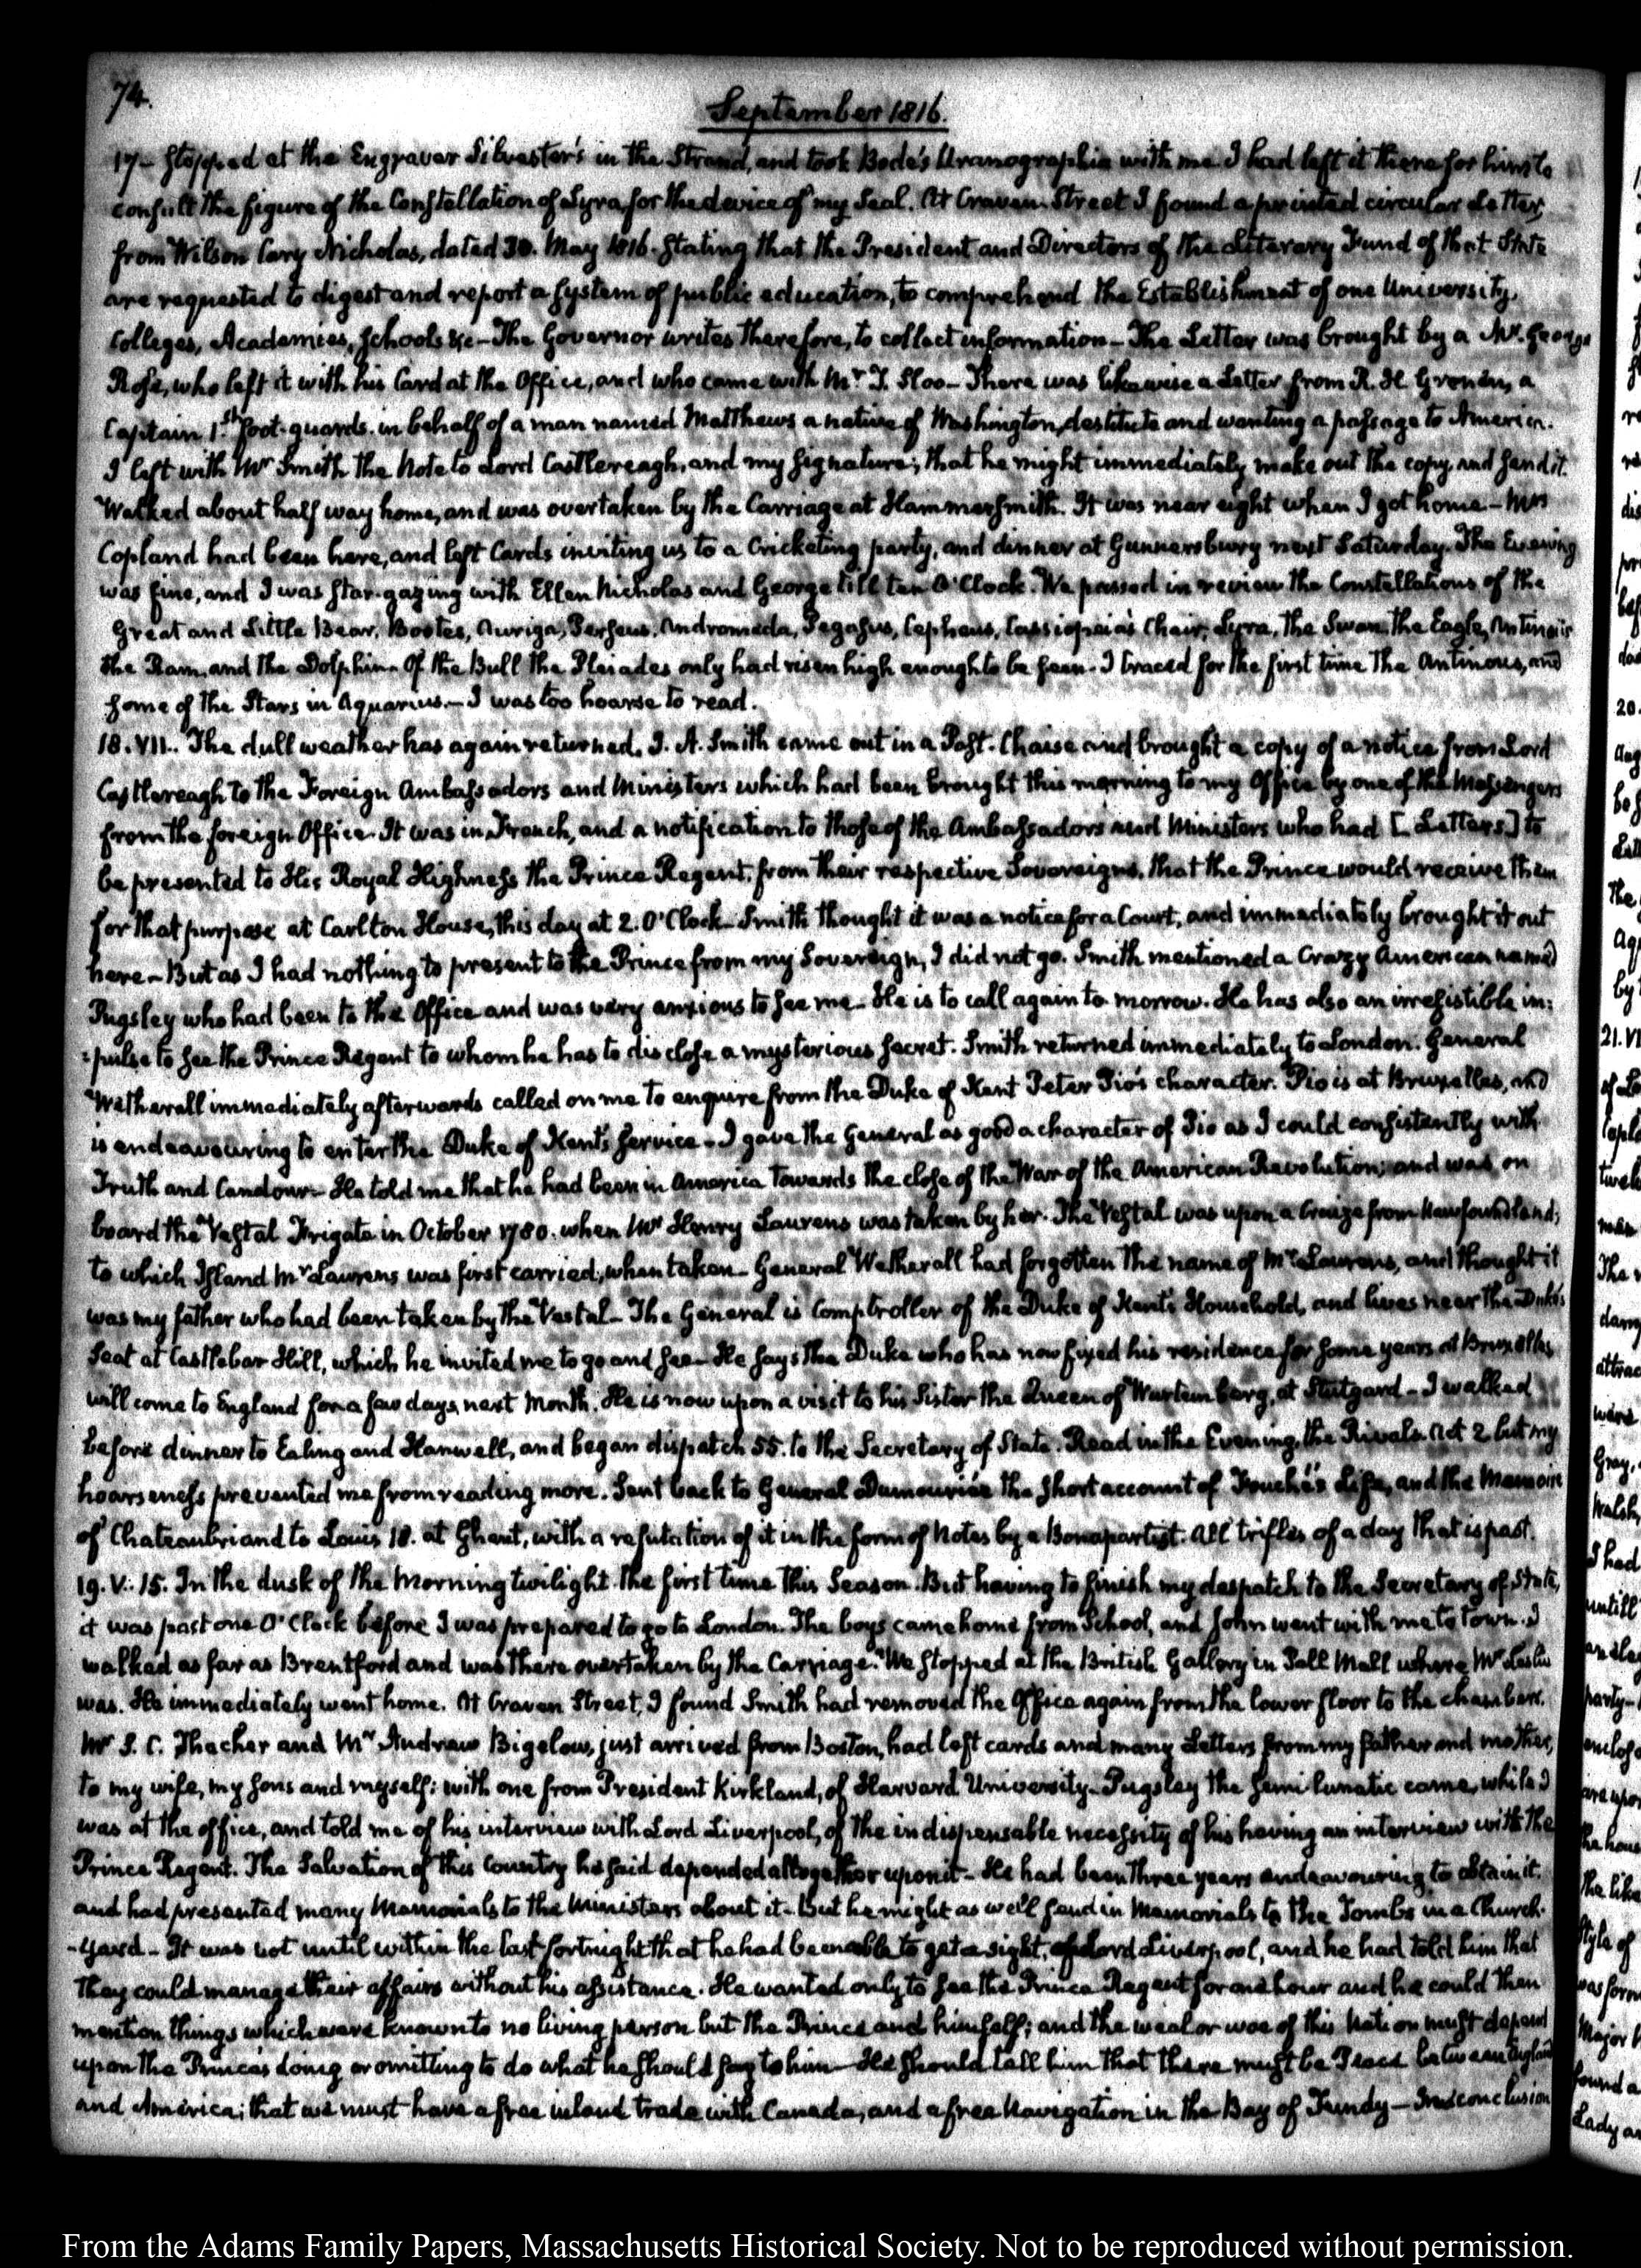 74.
September 1816.
17— Stopped at the Engraver Silvester's in the Strand, and took Bode's Uranographia with me. I had left it there for him to
consult the figure of the Constellation of Lyra, for the device of my Seal. At Craven Street I found a printed circular Letter
from Wilson Cary Nicholas, dated 30. May 1816. stating that the President and Directors of the Literary Fund of that State
are requested to digest and report a system of public education, to comprehend the Establishment of one University,
Colleges, Academies, Schools &c— The Governor writes therefore, to collect information— The Letter was brought by a Mr. George
Rose, who left it with his Card at the Office, and who came with Mr. T. Sloo— There was likewise a Letter from R. H. Gronow, a
Captain 1.st foot-guards. in behalf of a man named Matthews a native of Washington, destitute and wanting a passage to America.
I left with Mr Smith the Note to Lord Castlereagh, and my signature; that he might immediately make out the copy, and send it.
Walked about half way home, and was overtaken by the Carriage at Hammersmith. It was near eight when I got home— Mrs
Copland had been here, and left Cards inviting us to a Cricketing party, and dinner at Gunnersbury next Saturday. The Evening
was fine, and I was star-gazing with Ellen Nicholas and George till ten O'Clock. We passed in review the Constellations of the
Great and Little Bear, Bootes, Auriga, Perseus, Andromeda, Pegasus, Cepheus, Cassiopeia's Chair, Lyra, the Swan, the Eagle, Antinous
the Ram, and the Dolphin. Of the Bull the Pleiades only had risen high enough to be seen. I traced for the first time the Antinous, and
some of the Stars in Aquarius.— I was too hoarse to read.
18. VII. The dull weather has again returned. J. A. Smith came out in a Post-Chaise and brought a copy of a notice from Lord
Castlereagh to the Foreign Ambassadors and Ministers which had been brought this morning to my Office by one of the Messengers
from the foreign Office. It was in French, and a notification to those of the Ambassadors and Ministers who had [Letters] to
be presented to His Royal Highness the Prince Regent, from their respective Sovereigns, that the Prince would receive them
for that purpose at Carlton House, this day at 2. O'Clock— Smith thought it was a notice for a Court, and immediately brought it out
here— But as I had nothing to present to the Prince from my Sovereign, I did not go. Smith mentioned a Crazy American named
Pugsley who had been to the Office and was very anxious to see me— He is to call again to-morrow. He has also an irresistible im:
:pulse to see the Prince Regent to whom he has to disclose a mysterious secret. Smith returned immediately to London. General
Wetherall immediately afterwards called on me to enquire from the Duke of Kent Peter Pio's character. Pio is at Bruxelles, and
is endeavouring to enter the Duke of Kent's service— I gave the General as good a character of Pio as I could consistently with
Truth and Candour— He told me that he had been in America towards the close of the War of the American Revolution; and was on
board the Vestal Frigate in October 1780. when Mr Henry Laurens was taken by her. The Vestal was upon a Cruize from Newfoundland;
to which Island Mr Laurens was first carried, when taken— General Wetherall had forgotten the name of Mr Laurens, and thought it
was my father who had been taken by the Vestal— The General is Comptroller of the Duke of Kent's Household, and lives near the Duke's
Seat at Castlebar Hill, which he invited me to go and see— He says the Duke who has now fixed his residence for some years at Bruxelles,
will come to England for a few days, next Month. He is now upon a visit to his Sister the Queen of Wurtemberg, at Stutgard— I walked
before dinner to Ealing and Hanwell, and began dispatch 55. to the Secretary of State. Read in the Evening, the Rivals. Act 2 but my
hoarseness prevented me from reading more. Sent back to General Dumourier the short account of Fouché's Life, and the Memoire
of Chateaubriand to Louis 18. at Ghent, with a refutation of it in the form of Notes by a Bonapartist. All trifles of a day that is past.
19. V: 15. In the dusk of the Morning twilight. the first time this Season. But having to finish my despatch to the Secretary of State,
it was past one O'Clock before I was prepared to go to London. The boys came home from School, and John went with me to town. I
walked as far as Brentford and was there overtaken by the Carriage. We stopped at the British Gallery in Pall Mall where Mr Leslie
was. He immediately went home. At Craven Street, I found Smith had removed the Office again from the lower floor to the chambers.
Mr S. C. Thacher and Mr Andrew Bigelow, just arrived from Boston, had left cards and many Letters from my father and mother,
to my wife, my sons and myself: with one from President Kirkland, of Harvard University— Pugsley the semi-lunatic came, while I
was at the office, and told me of his interview with Lord Liverpool, of the indispensable necessity of his having an interview with the
Prince Regent. The Salvation of this Country he said depended altogether upon it— He had been three years endeavouring to obtain it.
and had presented many Memorials to the Ministers about it— But he might as well send in Memorials to the Tombs in a Church-
-yard— It was not until within the last fortnight that he had been able to get a sight, of Lord Liverpool, and he had told him that
they could manage their affairs without his assistance. He wanted only to see the Prince Regent for one hour and he could then
mention things which were known to no living person but the Prince and himself; and the weal or woe of this Nation must depend
upon the Prince's doing or omitting to do what he should say to him— He should tell him that there must be Peace between England
and America; that we must have a free inland trade with Canada, and a free Navigation in the Bay of Fundy— In conclusion
From the Adams Family Papers, Massachusetts Historical Society. Not to be reproduced without permission.